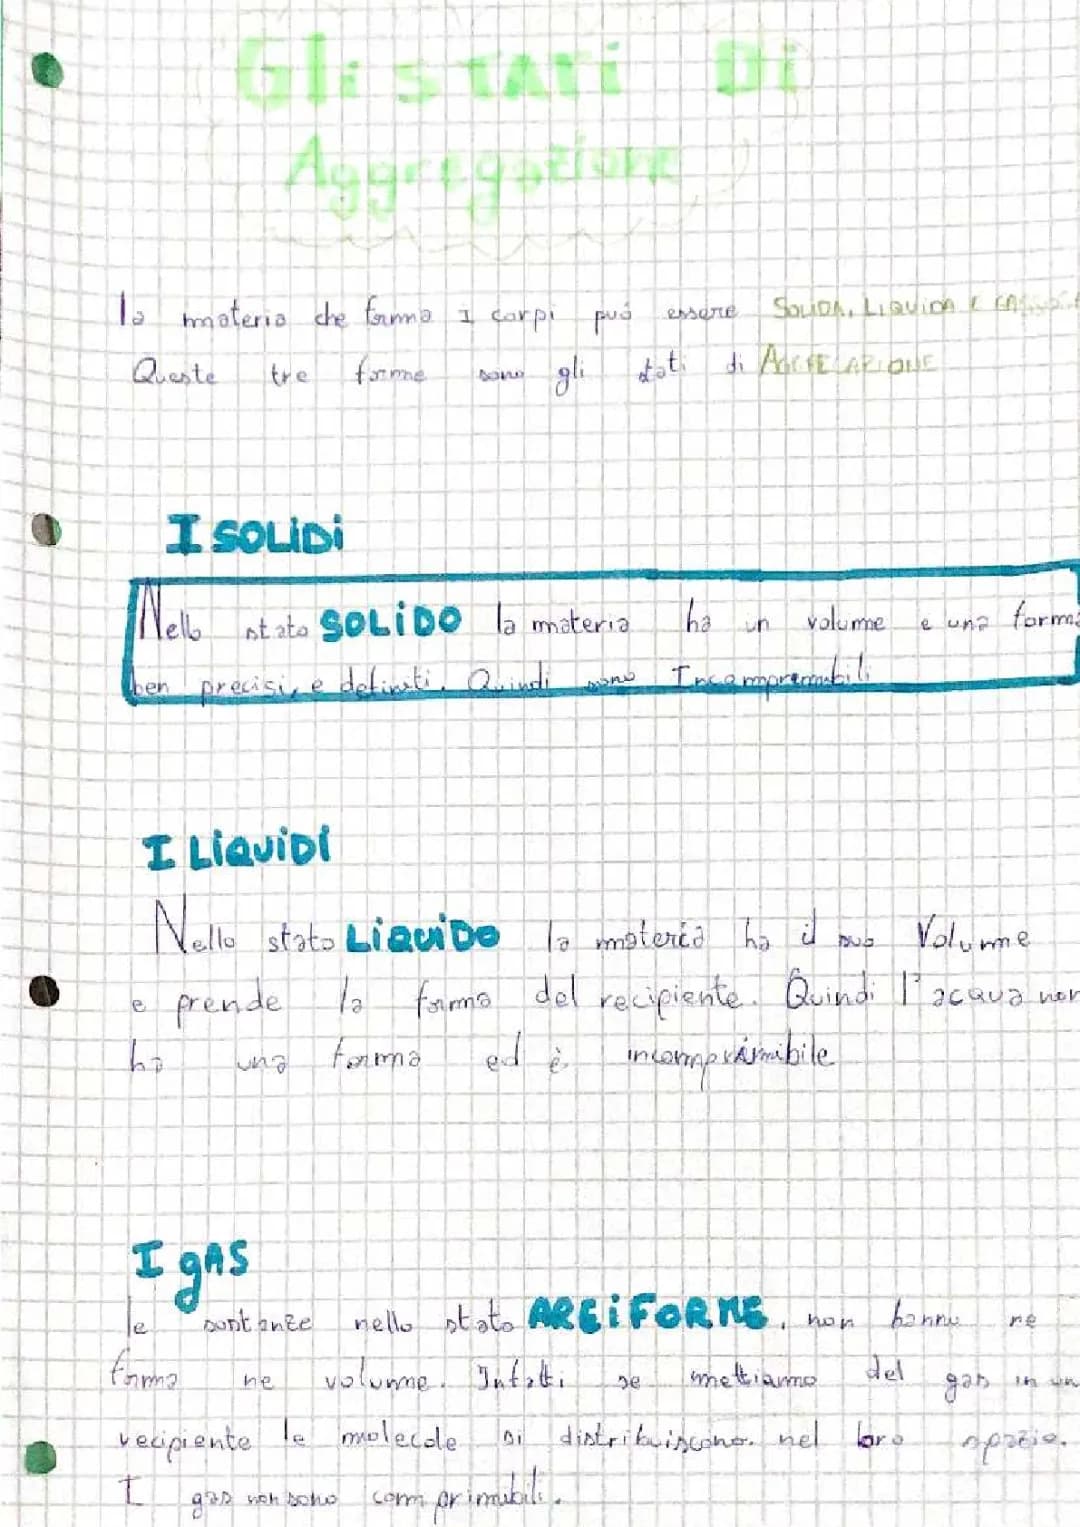 Gli STATi Di
Aggregazione
la materia che forma I corpi puó essere SOLIDA, LIQUIDA E
Queste tre forme sono gli stati di AGGREGAZIONE
I SOLIDi
Nello stato SOLiDO la materia ha un volume e una forma
ben precisi, e definiti. Quindi sono Incomprimibili
I LiQUiDi
Nello stato LiQUiDO la materia ha il suo Volume
e prende la forma del recipiente. Quindi l'acqua non
ha una forma ed è incomprimibile
I gAS
le sostanze nello stato AREiFORME, non hanno ne
forma ne volume. Infatti se mettiamo del gas in un
recipiente le molecole si distribuiscono nel loro spazio.
I gas non sono comprimibili.